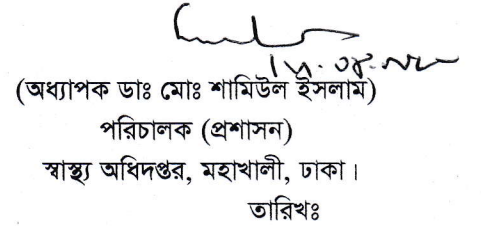 (অধ্যাপক ডাঃ মোঃ শামিউল ইসলাম)
পরিচালক (প্রশাসন)
স্বাস্থ্য অধিদপ্তর, মহাখালী, ঢাকা।
তারিখঃ